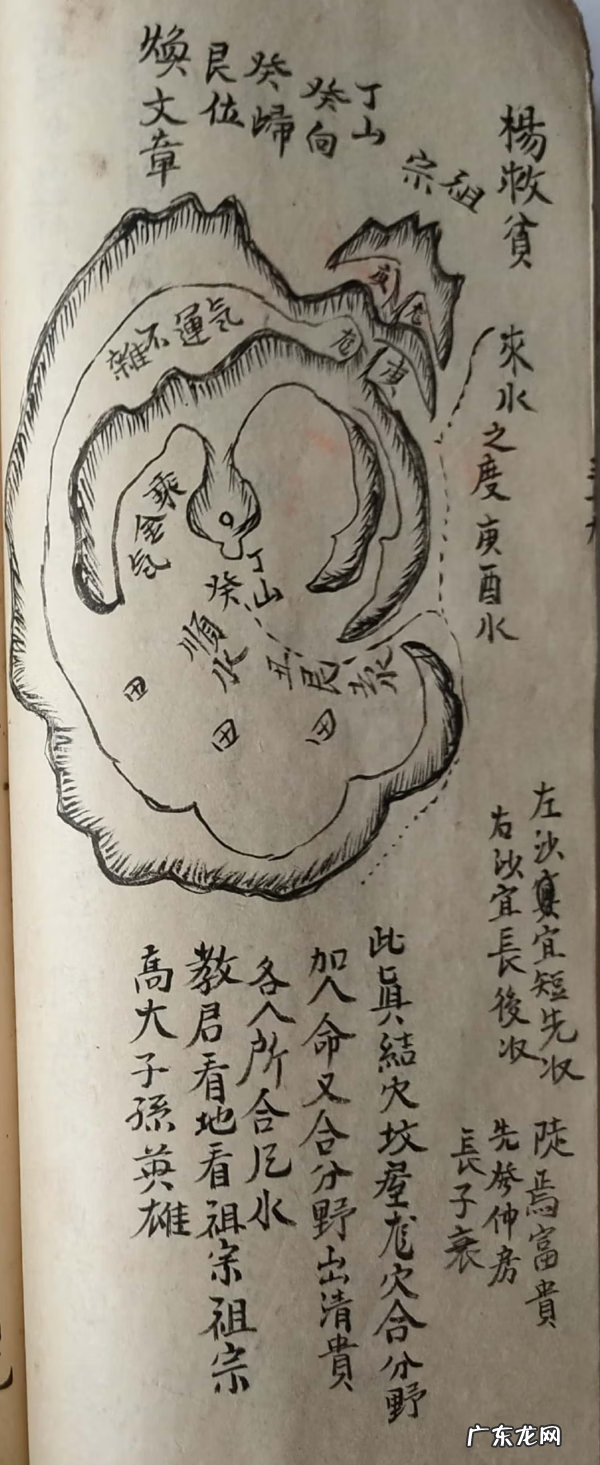 楊救貧
祖宗
丁山
癸向
癸歸
艮位
煥文章
來水之度庚酉水
氣運不雜
乘金氣
丁山
癸
順水
田
田
田
左沙宜短先收
右沙宜長後收
陡焉富貴
先發仲房
長子衰
此真結穴坟屋龙穴合分野
加人命又合分野出清貴
各人所合尼水
教君看地看祖宗祖宗
高大子孫英雄
广东龙网